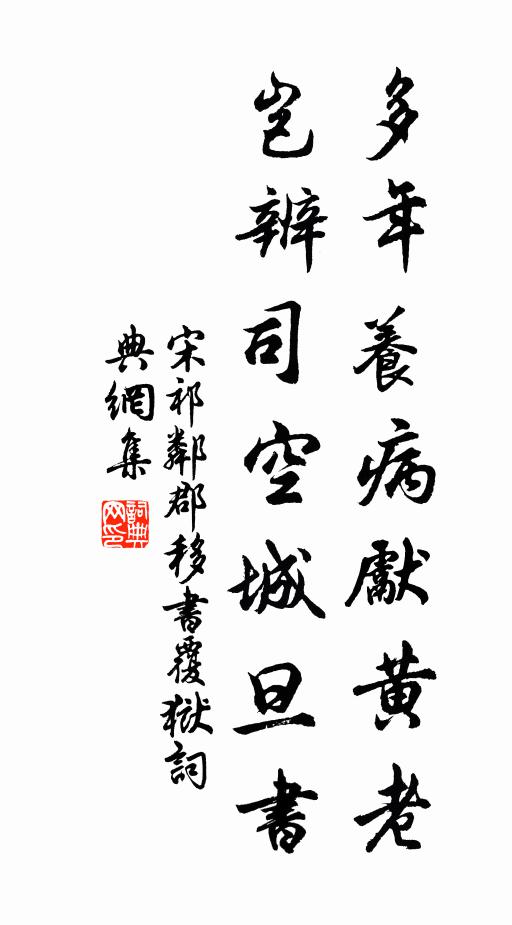 多年養病獻黃老
豈辨司空城旦書
宋祁鄰郡移書覆獄詞
典網集
詞典网印